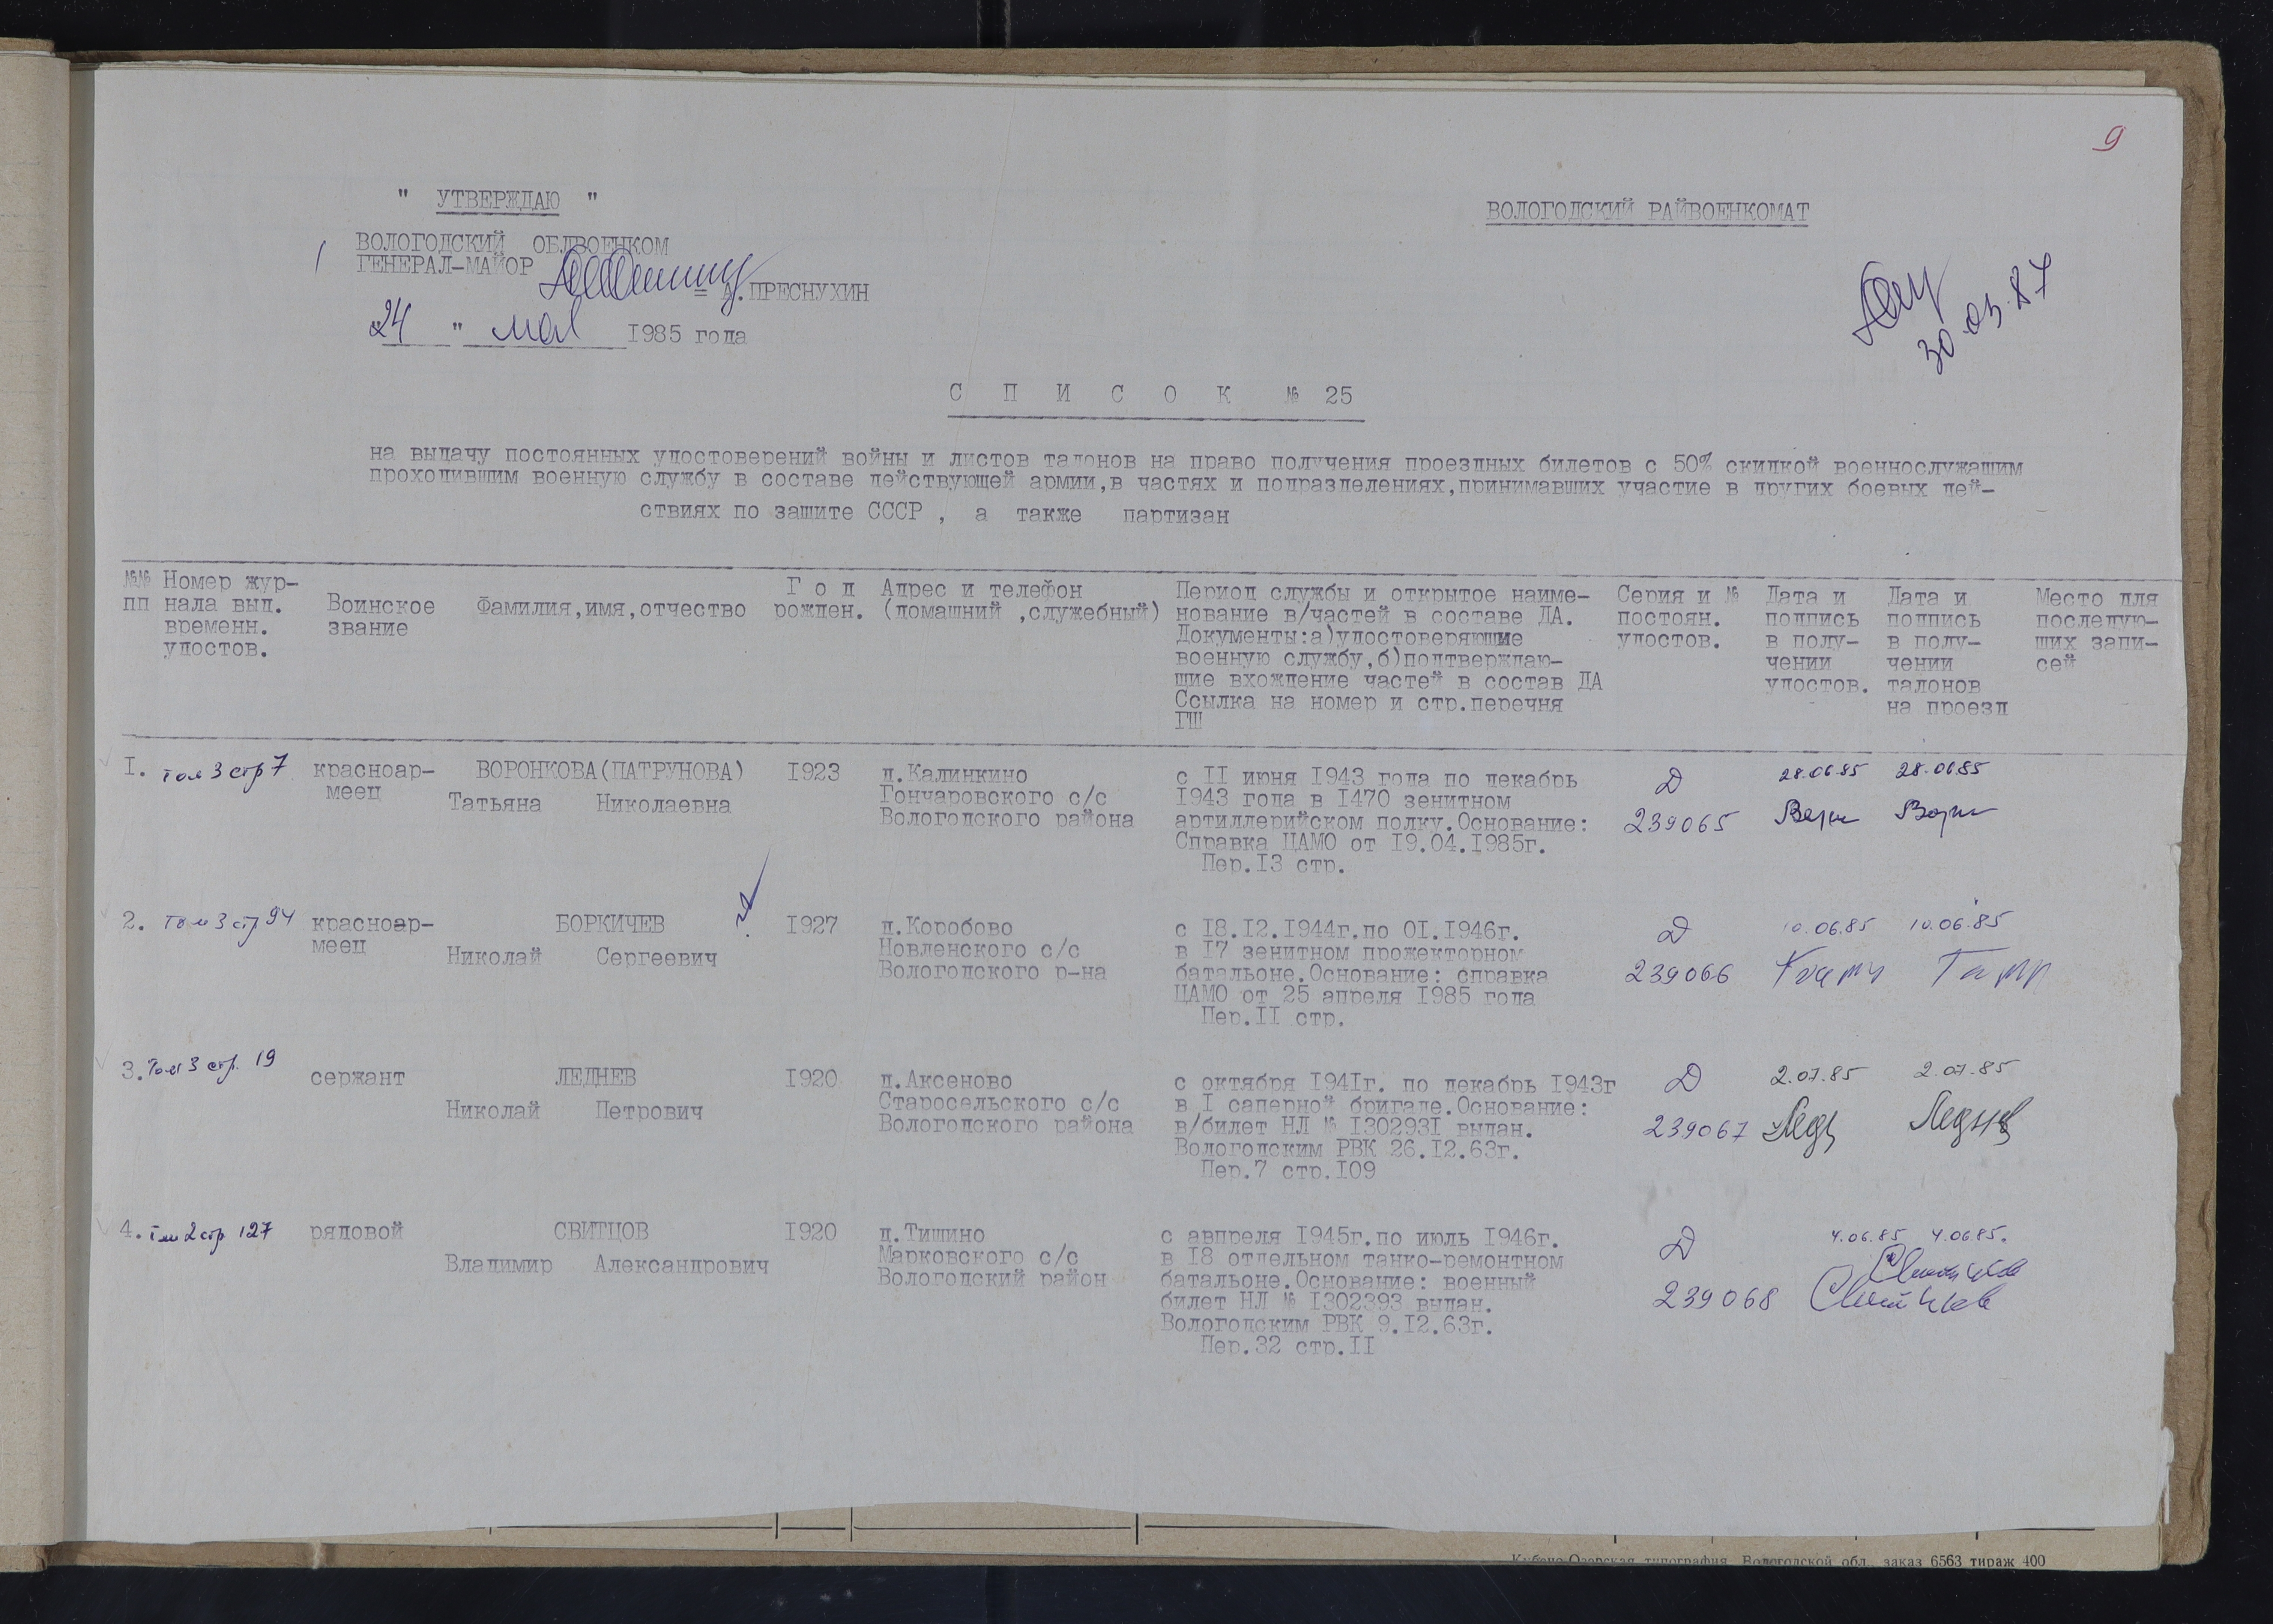 9
" УТВЕРЖДАЮ "
ВОЛОГОДСКИЙ РАЙВОЕНКОМАТ
ВОЛОГОДСКИЙ ОБЛВОЕНКОМ
ГЕНЕРАЛ-МАЙОР
= А.ПРЕСНУХИН
"24 " мая 1985 года
30.03.87
С П И С О К № 25
на выдачу постоянных удостоверений войны и листов талонов на право получения проездных билетов с 50% скидкой военнослужащим
проходившим военную службу в составе действующей армии,в частях и подразделениях,принимавших участие в других боевых дей-
ствиях по защите СССР , а также партизан
№№ пп
Номер жур-
нала выд.
временн.
удостов.
Воинское
звание
Фамилия,имя,отчество
Г о д
рожден.
Адрес и телефон
(домашний ,служебный)
Период службы и открытое наиме-
нование в/частей в составе ДА.
Документы:а)удостоверяющие
военную службу,б)подтверждаю-
щие вхождение частей в состав ДА
Ссылка на номер и стр.перечня
ГШ
Серия и №
постоян.
удостов.
Дата и
подпись
в полу-
чении
удостов.
Дата и
подпись
в полу-
чении
талонов
на проезд
Место для
последую-
щих запи-
сей
I. Том 3 стр 7
красноар-
меец
ВОРОНКОВА(ПАТРУНОВА)
Татьяна Николаевна
I923
д.Калинкино
Гончаровского с/с
Вологодского района
с II июня I943 года по декабрь
I943 года в I470 зенитном
артиллерийском полку.Основание:
Справка ЦАМО от I9.04.I985г.
Пер.I3 стр.
Д
239065
28.06.85 28.06.85
2. Том 3 стр 94
красноар-
меец
БОРКИЧЕВ
Николай Сергеевич
I927
д.Коробово
Новленского с/с
Вологодского р-на
с I8.I2.I944г.по OI.I946г.
в I7 зенитном прожекторном
батальоне.Основание: справка
ЦАМО от 25 апреля I985 года
Пер.II стр.
Д
239066
10.06.85 10.06.85
3. Том 3 стр. 19
сержант
ЛЕДНЕВ
Николай Петрович
I920
д.Аксеново
Старосельского с/с
Вологодского района
с октября I94Iг. по декабрь I943г
в I саперной бригаде.Основание:
в/билет НЛ № I30293I выдан.
Вологодским РВК 26.I2.63г.
Пер.7 стр.I09
Д
239067
2.07.85 2.07.85
Леднев
4. Том 2 стр 127
рядовой
СВИТЦОВ
Владимир Александрович
I920
д.Тишино
Марковского с/с
Вологодский район
с авпреля I945г.по июль I946г.
в I8 отдельном танко-ремонтном
батальоне.Основание: военный
билет НЛ № I302393 выдан.
Вологодским РВК 9.I2.63г.
Пер.32 стр.II
Д
239068
4.06.85 4.06.85.
типография Вологодской обл. заказ 6563 тираж 400